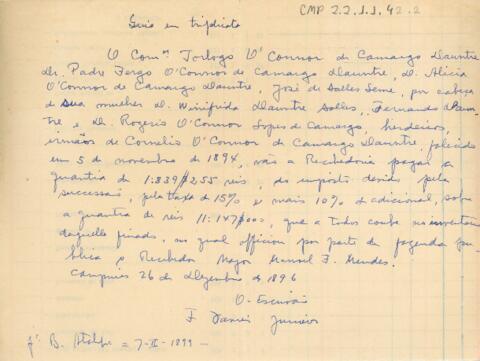 CMP 2.2.1.1.42.2
Guia em triplicata
O Comr Torlogo O'Connor de Camargo Dauntre
Dr. Padre Fergo O'Connor de Camargo Dauntre, D. Alicia
O'Connor de Camargo Dauntre, José de Salles Leme, por cabeça
de sua mulher D. Winifrida Dauntre Salles, Fernando Daun-
tre e D. Rogerio O'Connor Lopes de Camargo, herdeiros,
irmãos de Cornelio O'Connor de Camargo Dauntre, falecido
em 5 de novembro de 1894, vão a Recebedoria pagar a
quantia de 1:839$255 reis, do imposto devido pela
successão, pela taxa de 15% e mais 10% de addicional, sobre
a quantia de reis 11:147$000, que a todos coube no inventario
daquelle finado, no qual officiou por parte da fazenda pu-
blica o Recebedor Major Manoel F. Mendes.
Campinas 26 de Dezembro de 1896
O Escrivão
F. Junior
B. = 7-II-1899 -